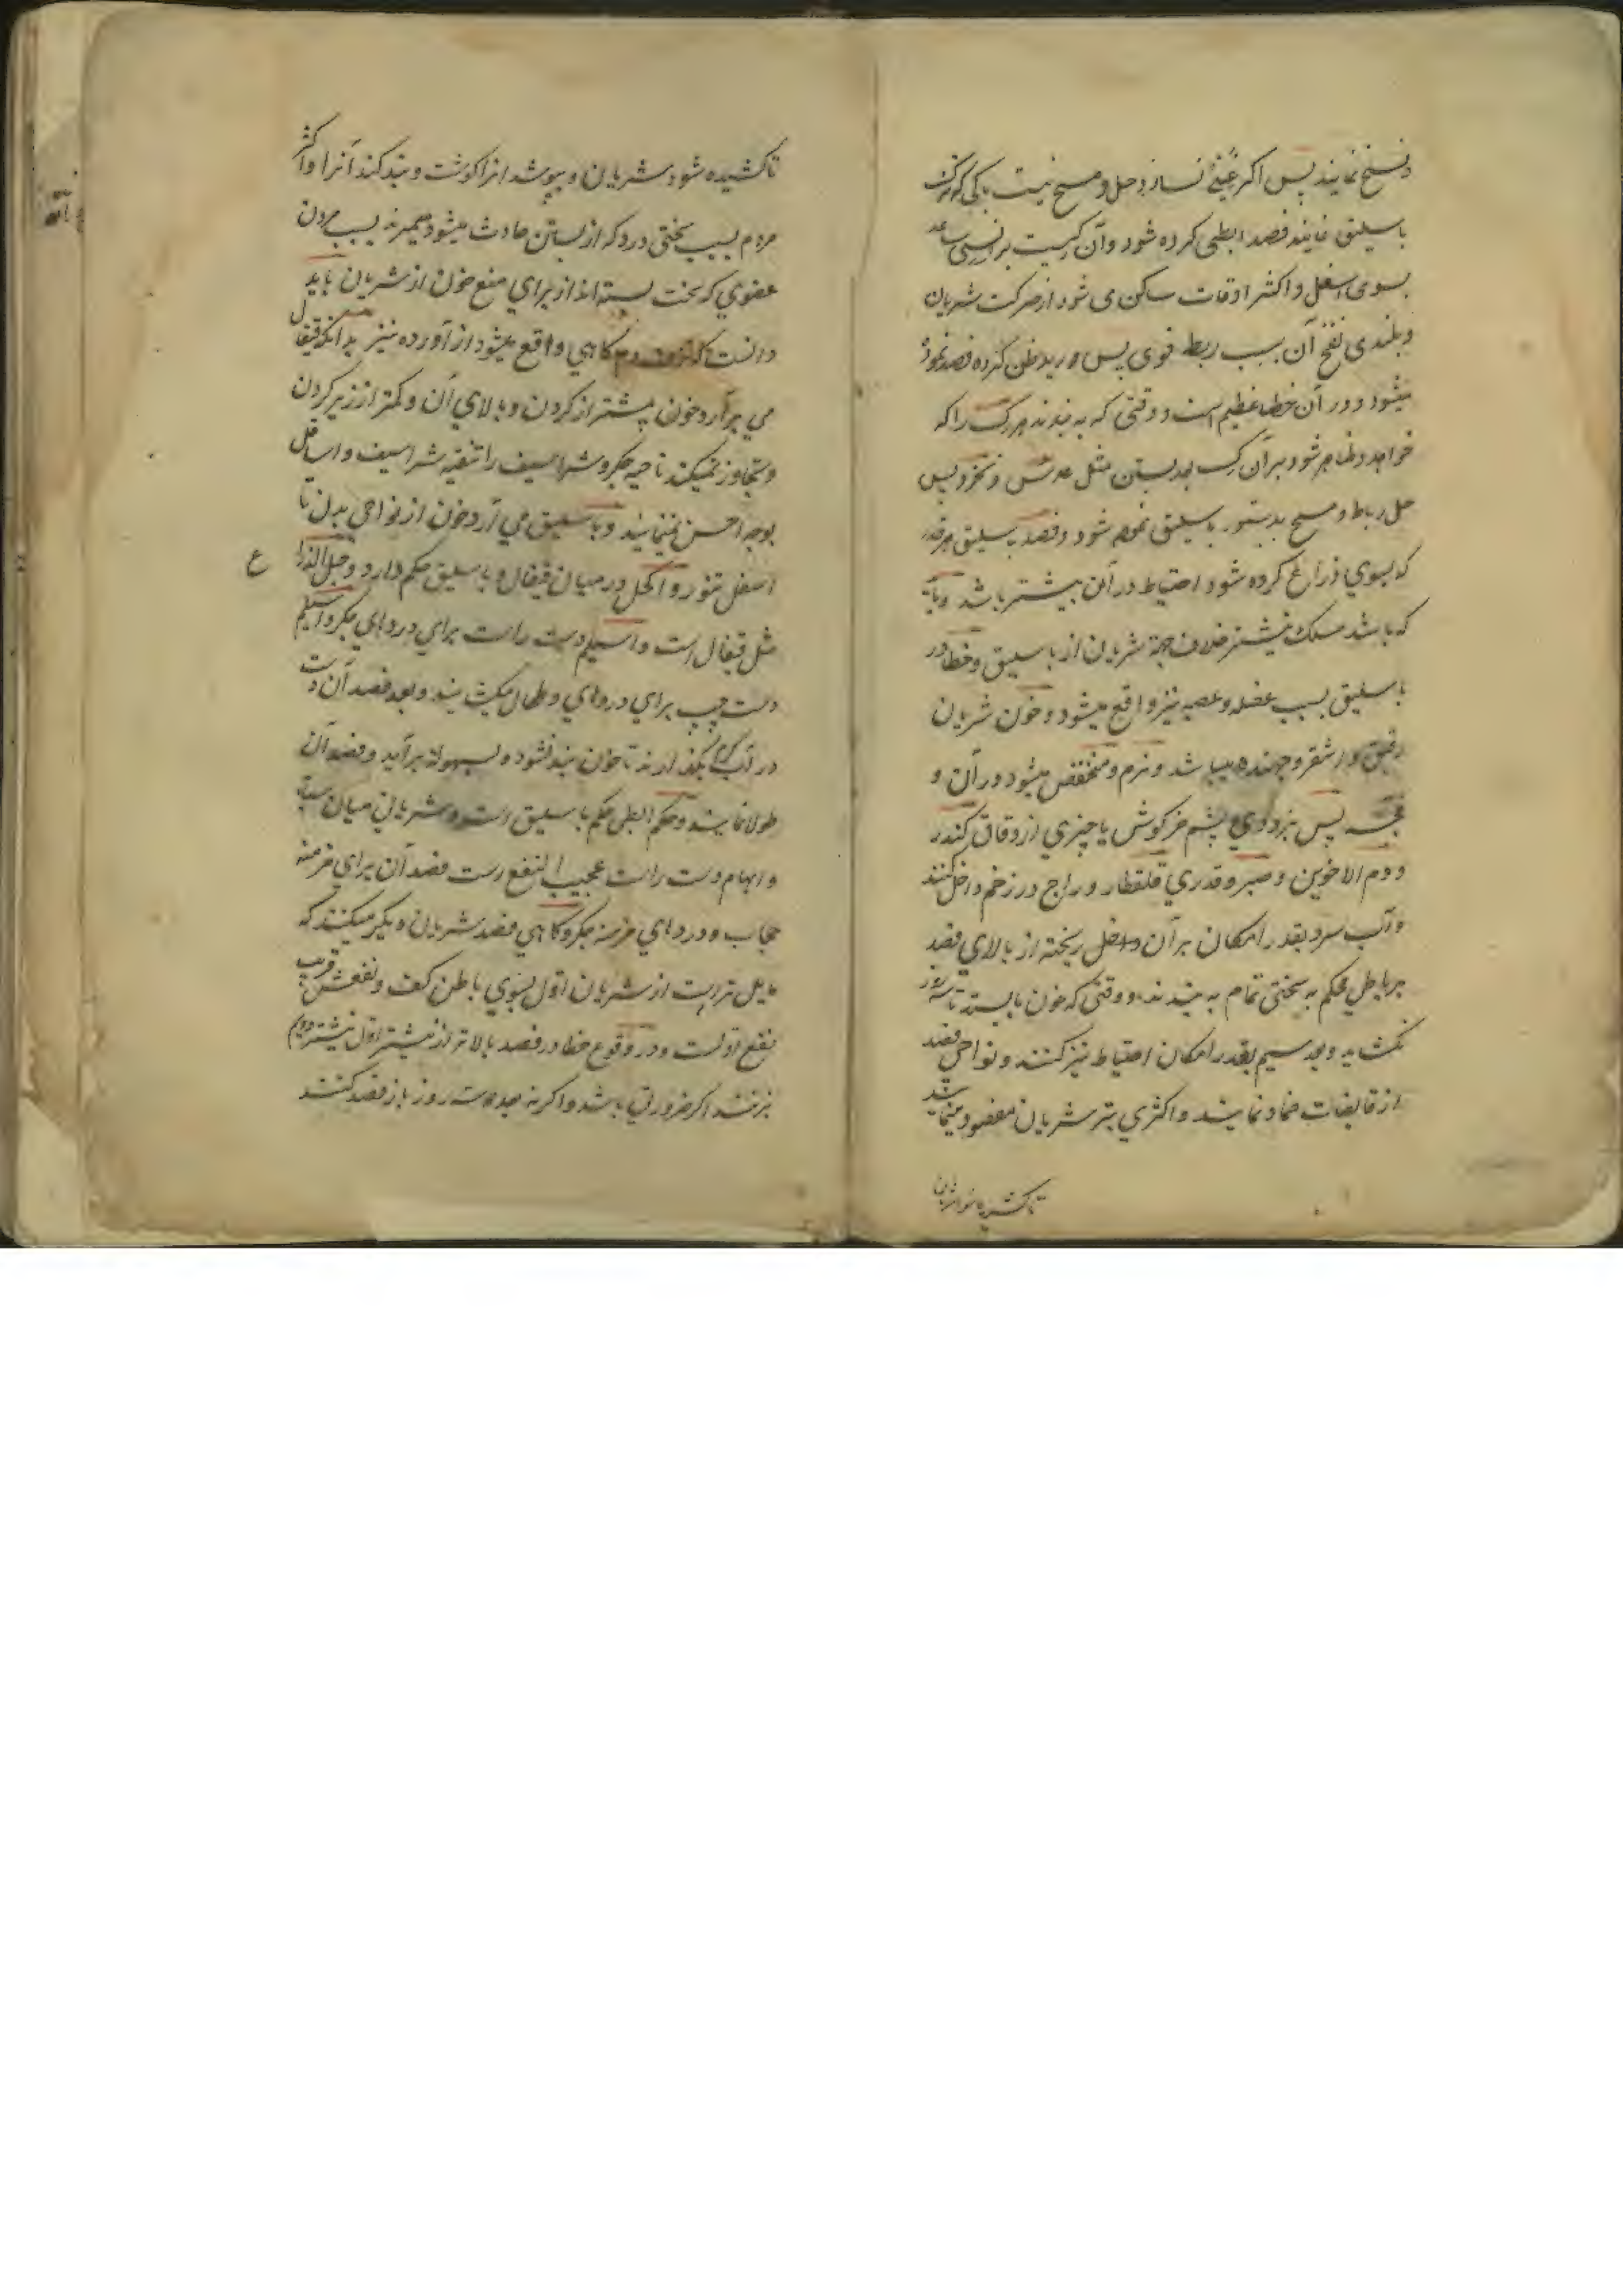 نمایند پس اکر غنی نسازد حل و مسح نیست باکی که ترک
باسلیق نمایند فصد ابطی کرده شود و آن رکیست بر انسی ساعد
بسوی اسفل و اکثر اوقات ساکن می شود از حرکت شریان
و بلندی نفخ آن بسبب ربط قوی پس ورید ظن کرده فصد نموده
میشود و در آن خطاء عظیم است و وقتی که به بندند هر رک را که
خواهد و ظاهر شود بر آن رک بعد بستن مثل عدس و نخود پس
حل رباط و مسح بدستور باسلیق نموده شود و فصد باسلیق هر قدر
که بسوی ذراع کرده شود احتیاط در آن بیشتر باشد و باید
که باشد مسلک نیشتر خلاف جهة شریان از باسلیق و خطا در
باسلیق بسبب عضله و عصبه نیز واقع میشود و خون شریان
رقیق و اشقر و جهنده میباشد و نرم و منخفض میشود در آن و
پس بزودی پشم خرکوش یا چیزی از دقاق کندر
و دم الاخوین و صبر و قدری قلقطار و زاج در زخم داخل کنند
و آب سرد بقدر امکان بر آن داخل ریخته از بالای فصد
برباطی محکم به سختی تمام به بندند و وقتی که خون بایستد تا سه روز
نکشایند و بعد سیم بقدر امکان احتیاط نیز کنند و نواحی فصد
از قابضات ضماد نمایند و اکثری بتر شریان مفصود مینمایند
تا کشیده شود شریان
تا کشیده شود شریان و بپوشد انرا کوشت و بند کند آنرا و اکثر
مردم بسبب سختی درد که از بستن حادث میشود میمیرند بسبب مردن
عضوی که سخت بسته اند از برای منع خون از شریان باید
دانست که نزف دم کاهی واقع میشود از آورده نیز بدانکه قیفال
می برآرد خون بیشتر از کردن و بالای آن و کمتر از زیر کردن
و تجاوز نمیکند ناحیه جکر و شراسیف را تنقیه شراسیف و اسافل
بوجه احسن نمینمایند و باسلیق می آرد خون از نواحی بدن تا
اسفل تنور و اکحل در میان قیفال و باسلیق حکم دارد و حبل الذراع
مثل قیفال است و اسیلم دست راست برای دردهای جکر و اسیلم
دست چپ برای دردهای و طحال میکشایند و بعد فصد آن دست
در آب کرم بکذارند تا خون بند نشود و بسهوله برآید و فصد آن
طولا نمایند و حکم ابطی حکم باسلیق است و شریانی میان سبابه
و ابهام دست راست عجیب النفع است فصد آن برای مزمنه
حجاب و دردهای مزمنه جکر و کاهی فصد شریان دیکر میکنند که
مایل تر است از شریان اول بسوی باطن کف و نفعش قریب
نفع اوست و در وقوع خطا در فصد بالاتر از نیشتر اول نیشتر دوم
بزنند اکر ضرورتی باشد و اکر نه بعد هفت روز باز فصد کنند